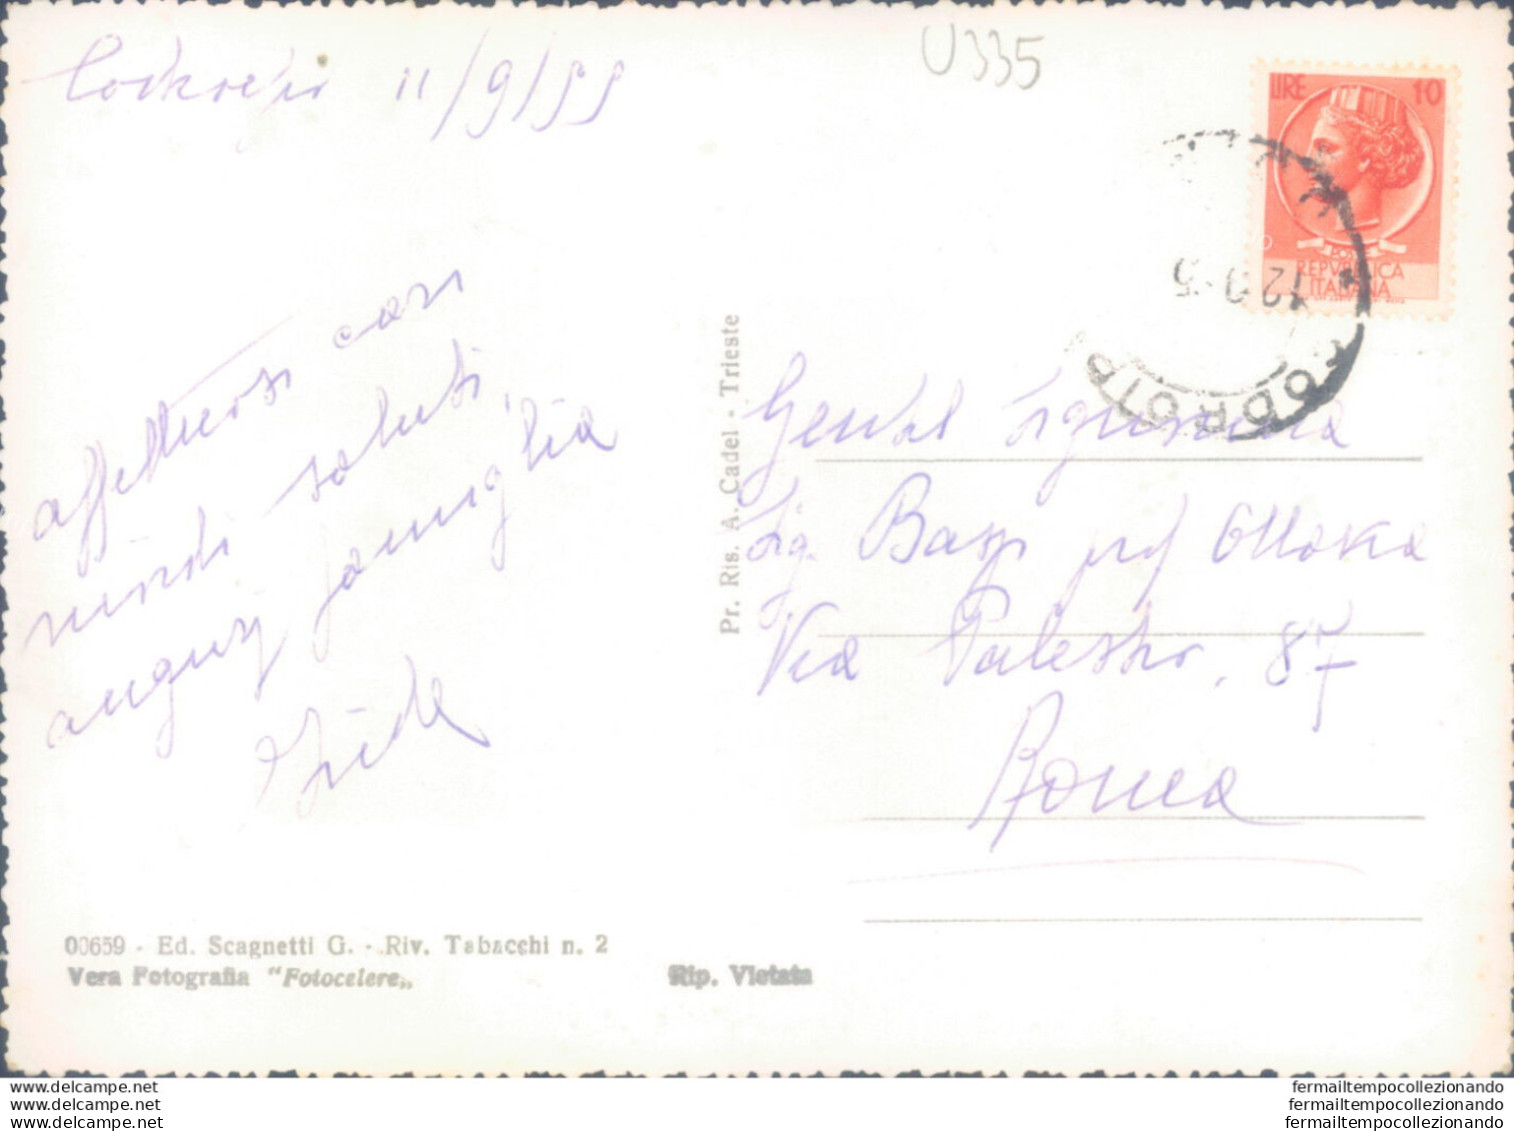 Codroipo 11/9/55
U335
LIRE 10
POSTE
REPVBBLICA
ITALIANA
12 9 5
CODROIPO
affettuosi cari
saluti,
auguri famiglia
Pr. Ris. A. Cadel - Trieste
Gentil Signorina
Sig. Bassi
Via Palestro, 87
Roma
00659 - Ed. Scagnetti G. - Riv. Tabacchi n. 2
Vera Fotografia "Fotocelere„
Rip. Vietata
www.delcampe.net
www.delcampe.net
www.delcampe.net
fermailtempocollezionando
fermailtempocollezionando
fermailtempocollezionando